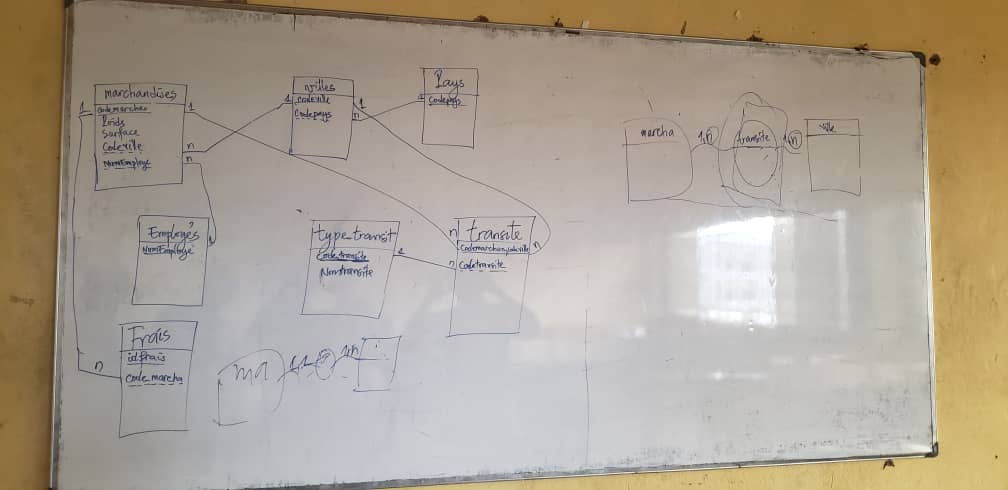 marchandises
codemarchan
Poids
Surface
Codeville
NumEmploye
1
1
n
n
villes
codeville
Codepays
1
1
n
Pays
Codepays
1
Employés
NumEmploye
1
typetransit
Codetransite
Nomtransite
1
transite
Codemarchan, codeville
Codetransite
n
n
n
Frais
idfrais
Code marcha
n
ma
1,1
1,n
marcha
1,n
transite
1,n
ville